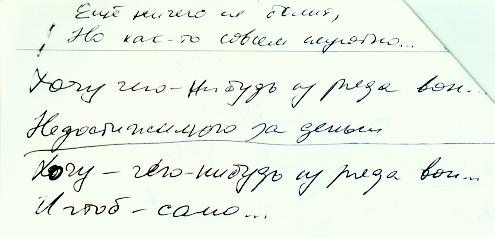 Ещё ничего не болит,
Но как-то совсем неуютно...
Хочу чего-нибудь из ряда вон...
Недостижимого за деньги
Хочу - чего-нибудь из ряда вон...
И чтоб - само...